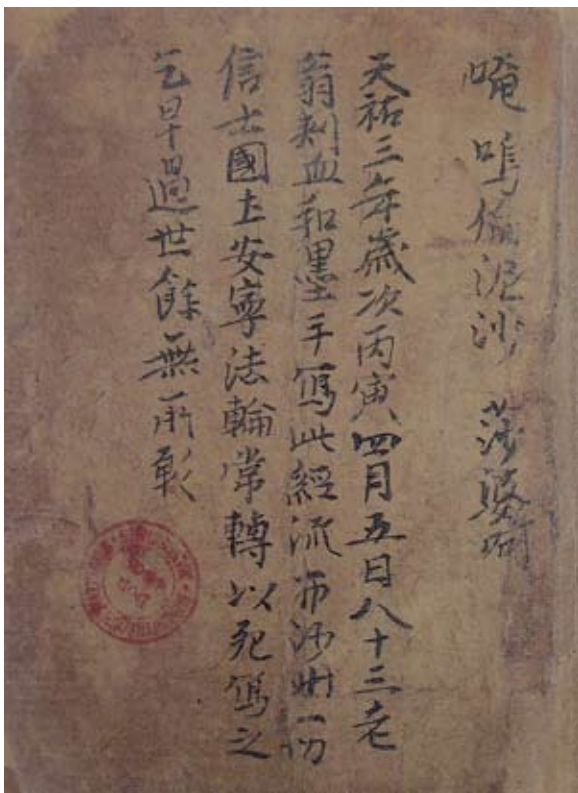 唵嗚倫泥沙 莎婆訶
天祐三年歲次丙寅四月五日八十三老
翁刺血和墨手寫此經流布沙州一切
信士國土安寧法輪常轉以死寫之
乞早過世餘無所願